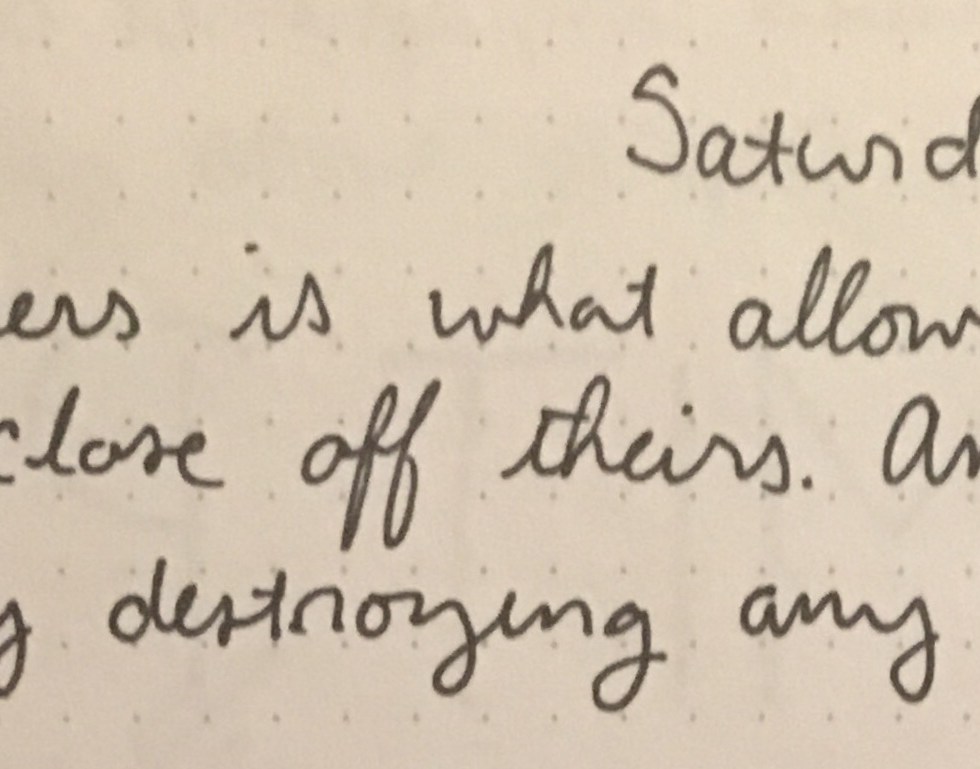 Saturd
ers is what allow
close off theirs. An
y destroying any